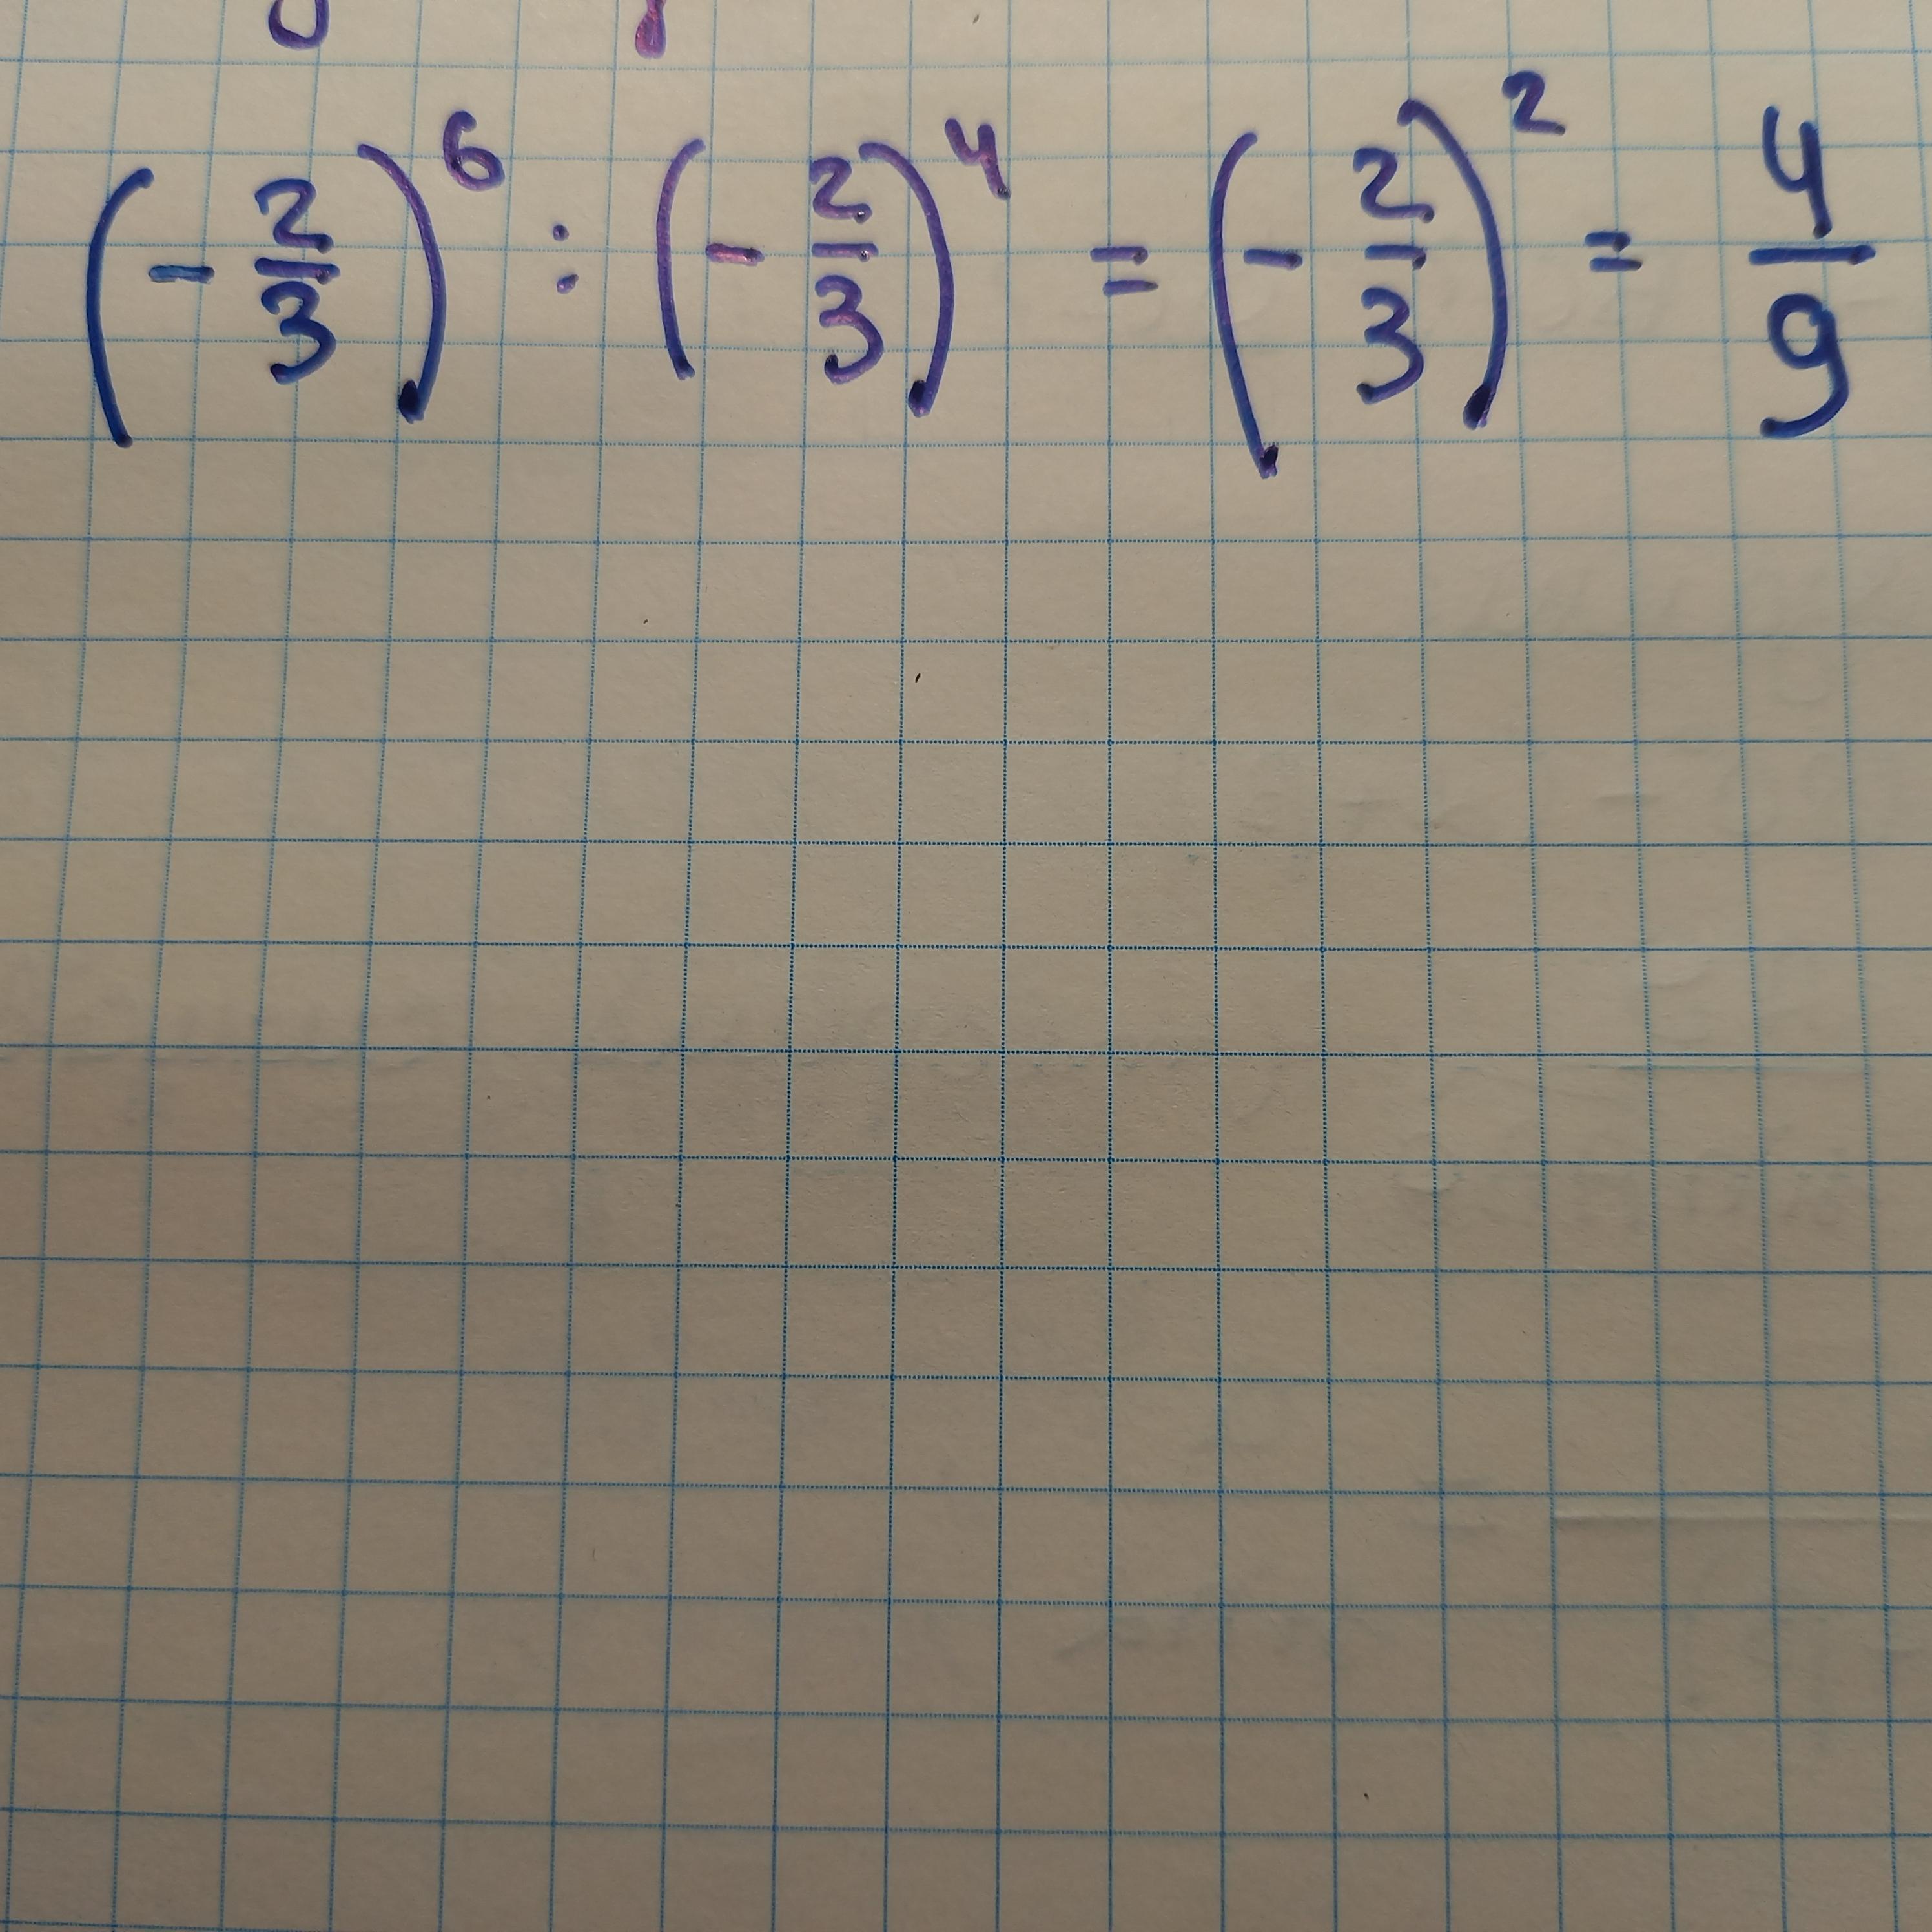 (- 2/3)⁶ : (- 2/3)⁴ = (- 2/3)² = 4/9